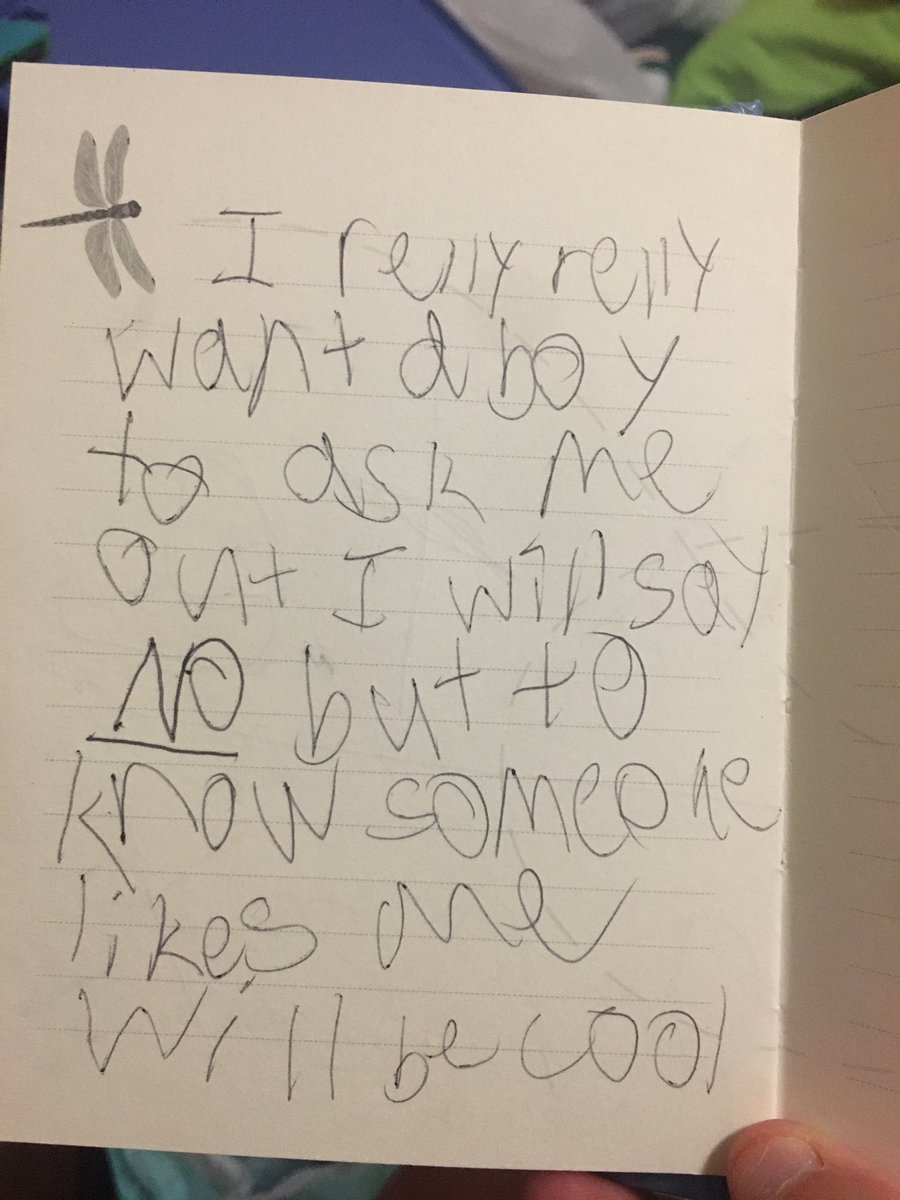 I relly relly
want a boy
to ask me
out I will say
NO but to
know someone
likes me
will be cool